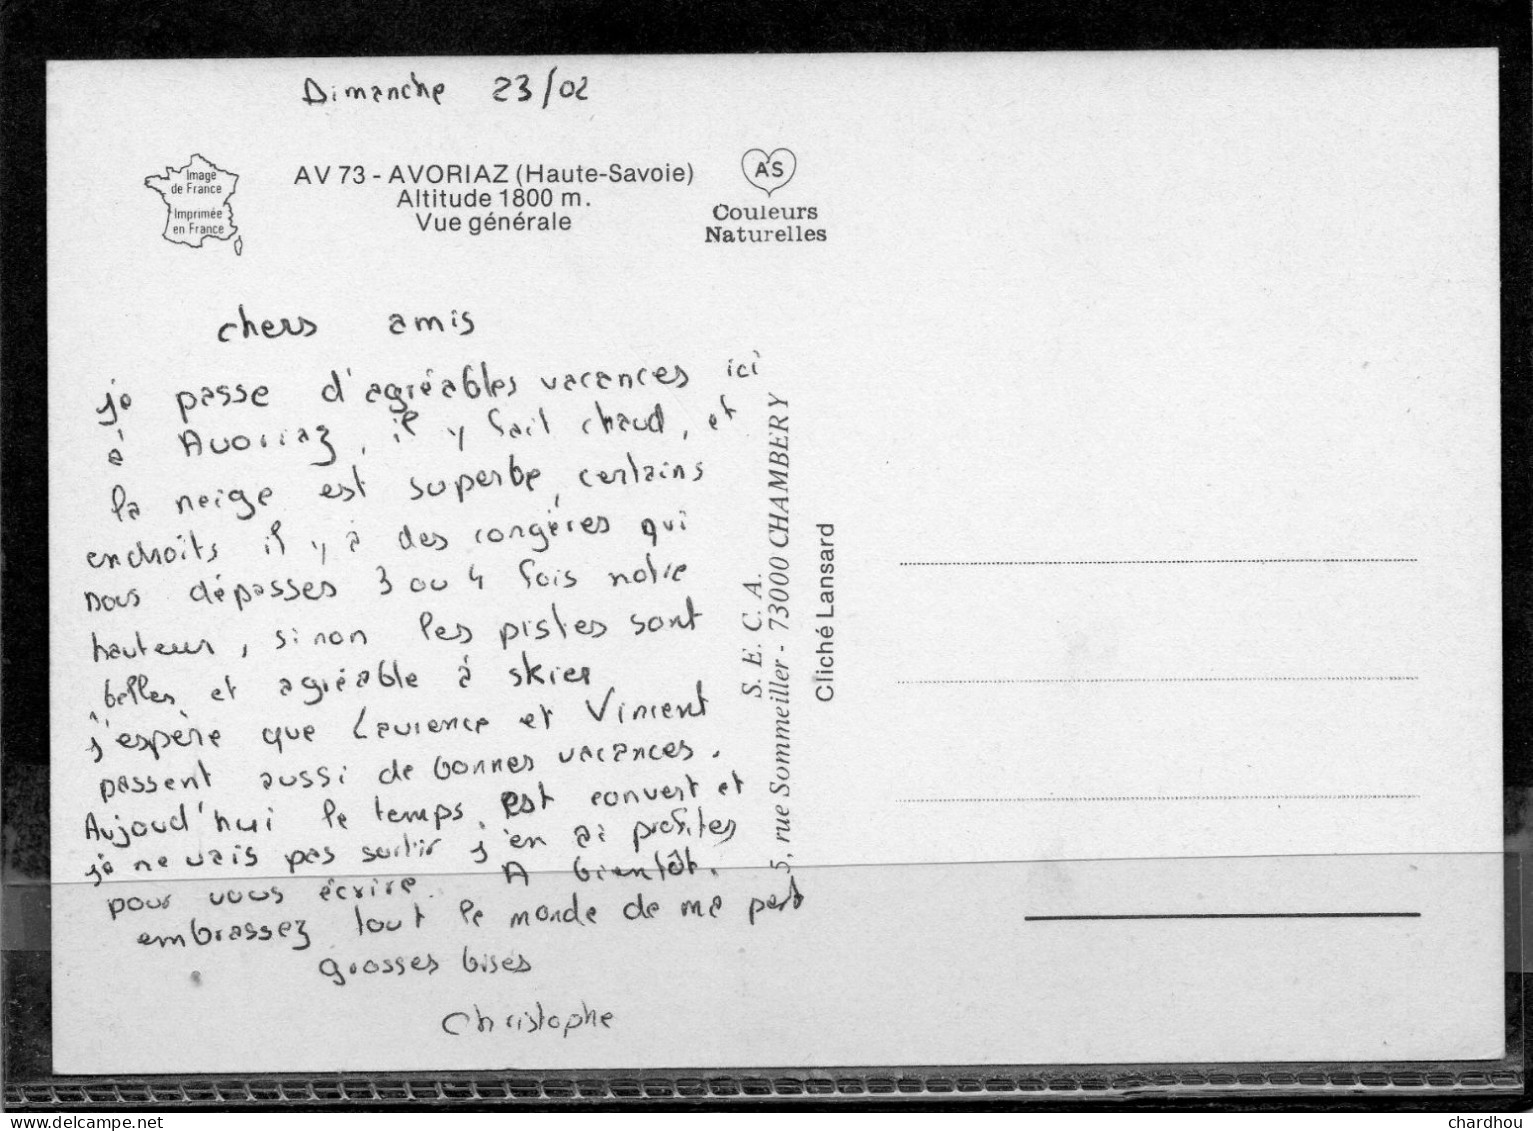 Dimanche 23/02
Image
de France
Imprimée
en France
AV 73 - AVORIAZ (Haute-Savoie)
Altitude 1800 m.
Vue générale
AS
Couleurs
Naturelles
chers amis
je passe d'agréables vacances ici
à Avoriaz, il y fait chaud, et
la neige est superbe, certains
endroits il y à des congères qui
nous dépasses 3 ou 4 fois notre
hauteur, sinon les pistes sont
belles et agréable à skier
j'espère que Laurence et Vincent
passent aussi de bonnes vacances.
Aujourd'hui le temps est convert et
je ne vais pas sortir j'en ai profites
pour vous écrire. A bientôt.
embrassez tout le monde de ma part
grosses bises
Christophe
S. E. C. A.
5, rue Sommeiller - 73000 CHAMBERY
Cliché Lansard
www.delcampe.net
chardhou